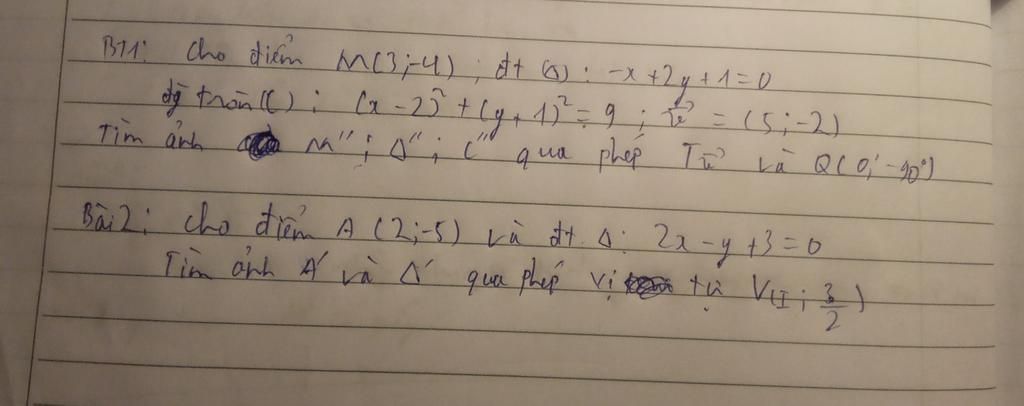 BT1: Cho điểm M(3;-4); đt (Δ): -x+2y+1=0
đg tròn (C): (x-2)²+(y+1)²=9; u⃗ = (5;-2)
Tìm ảnh M''; Δ''; C'' qua phép Tu⃗ và Q(0;-90°)
Bài 2: Cho điểm A (2;-5) và đt Δ: 2x-y+3=0
Tìm ảnh A' và Δ' qua phép vị tự V(I; 3/2)